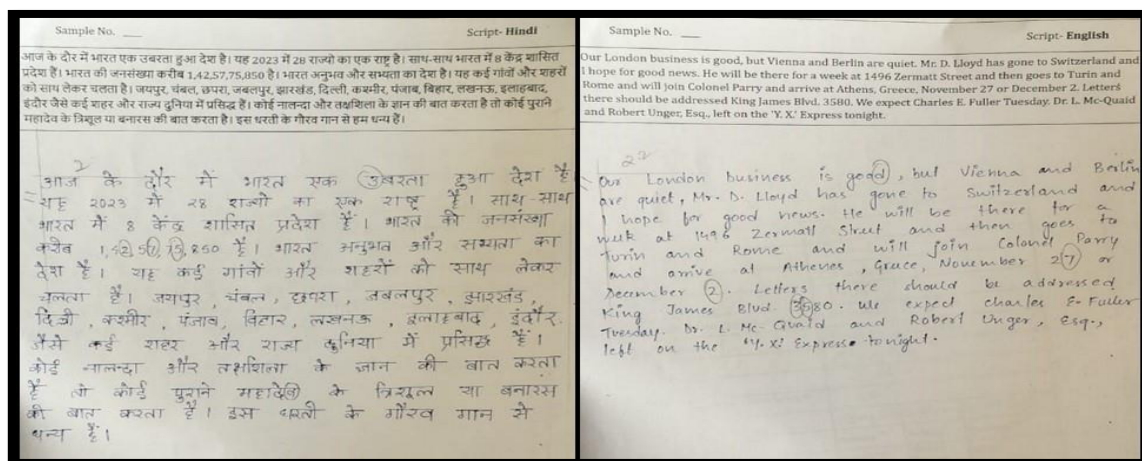 Sample No. ___
Script- Hindi
आज के दौर में भारत एक उबरता हुआ देश है। यह 2023 में 28 राज्यो का एक राष्ट्र है। साथ-साथ भारत में 8 केंद्र शासित
प्रदेश हैं। भारत की जनसंख्या करीब 1,42,57,75,850 है। भारत अनुभव और सभ्यता का देश है। यह कई गांवों और शहरों
को साथ लेकर चलता है। जयपुर, चंबल, छपरा, जबलपुर, झारखंड, दिल्ली, कश्मीर, पंजाब, बिहार, लखनऊ, इलाहबाद,
इंदौर जैसे कई शहर और राज्य दुनिया में प्रसिद्ध हैं। कोई नालन्दा और तक्षशिला के ज्ञान की बात करता है तो कोई पुराने
महादेव के त्रिशूल या बनारस की बात करता है। इस धरती के गौरव गान से हम धन्य हैं।
2
आज के दौर में भारत एक उबरता हुआ देश है
यह 2023 में 28 राज्यो का एक राष्ट्र है। साथ-साथ
भारत में 8 केंद्र शासित प्रदेश हैं। भारत की जनसंख्या
करीब 850 है। भारत अनुभव और सभ्यता का
देश है। यह कई गांवों और शहरों को साथ लेकर
चलता है। जयपुर, चंबल, छपरा, जबलपुर, झारखंड,
दिल्ली, कश्मीर, पंजाब, बिहार, लखनऊ, इलाहबाद, इंदौर.
जैसे कई शहर और राज्य दुनिया में प्रसिद्ध हैं।
कोई नालन्दा और तक्षशिला के ज्ञान की बात करता
है तो कोई पुराने महादेव के त्रिशूल या बनारस
की बात करता है। इस धरती के गौरव गान से
धन्य हैं।
Sample No. ___
Script- English
Our London business is good, but Vienna and Berlin are quiet. Mr. D. Lloyd has gone to Switzerland and
I hope for good news. He will be there for a week at 1496 Zermatt Street and then goes to Turin and
Rome and will join Colonel Parry and arrive at Athens, Greece, November 27 or December 2. Letters
there should be addressed King James Blvd. 3580. We expect Charles E. Fuller Tuesday. Dr. L. Mc-Quaid
and Robert Unger, Esq., left on the 'Y. X.' Express tonight.
22
Our London business is good, but Vienna and Berlin
are quiet, Mr. D. Lloyd has gone to Switzerland and
I hope for good news. He will be there for a
week at 1496 Zermatt Street and then goes to
Turin and Rome and will join Colonel Parry
and arrive at Athenes, Grece, November 27 or
December 2. Letters there should be addressed
King James Blvd. 3580. We expect Charles E. Fuller
Tuesday. Dr. L. Mc-Quaid and Robert Unger, Esq.,
left on the 'Y. X.' Express tonight.